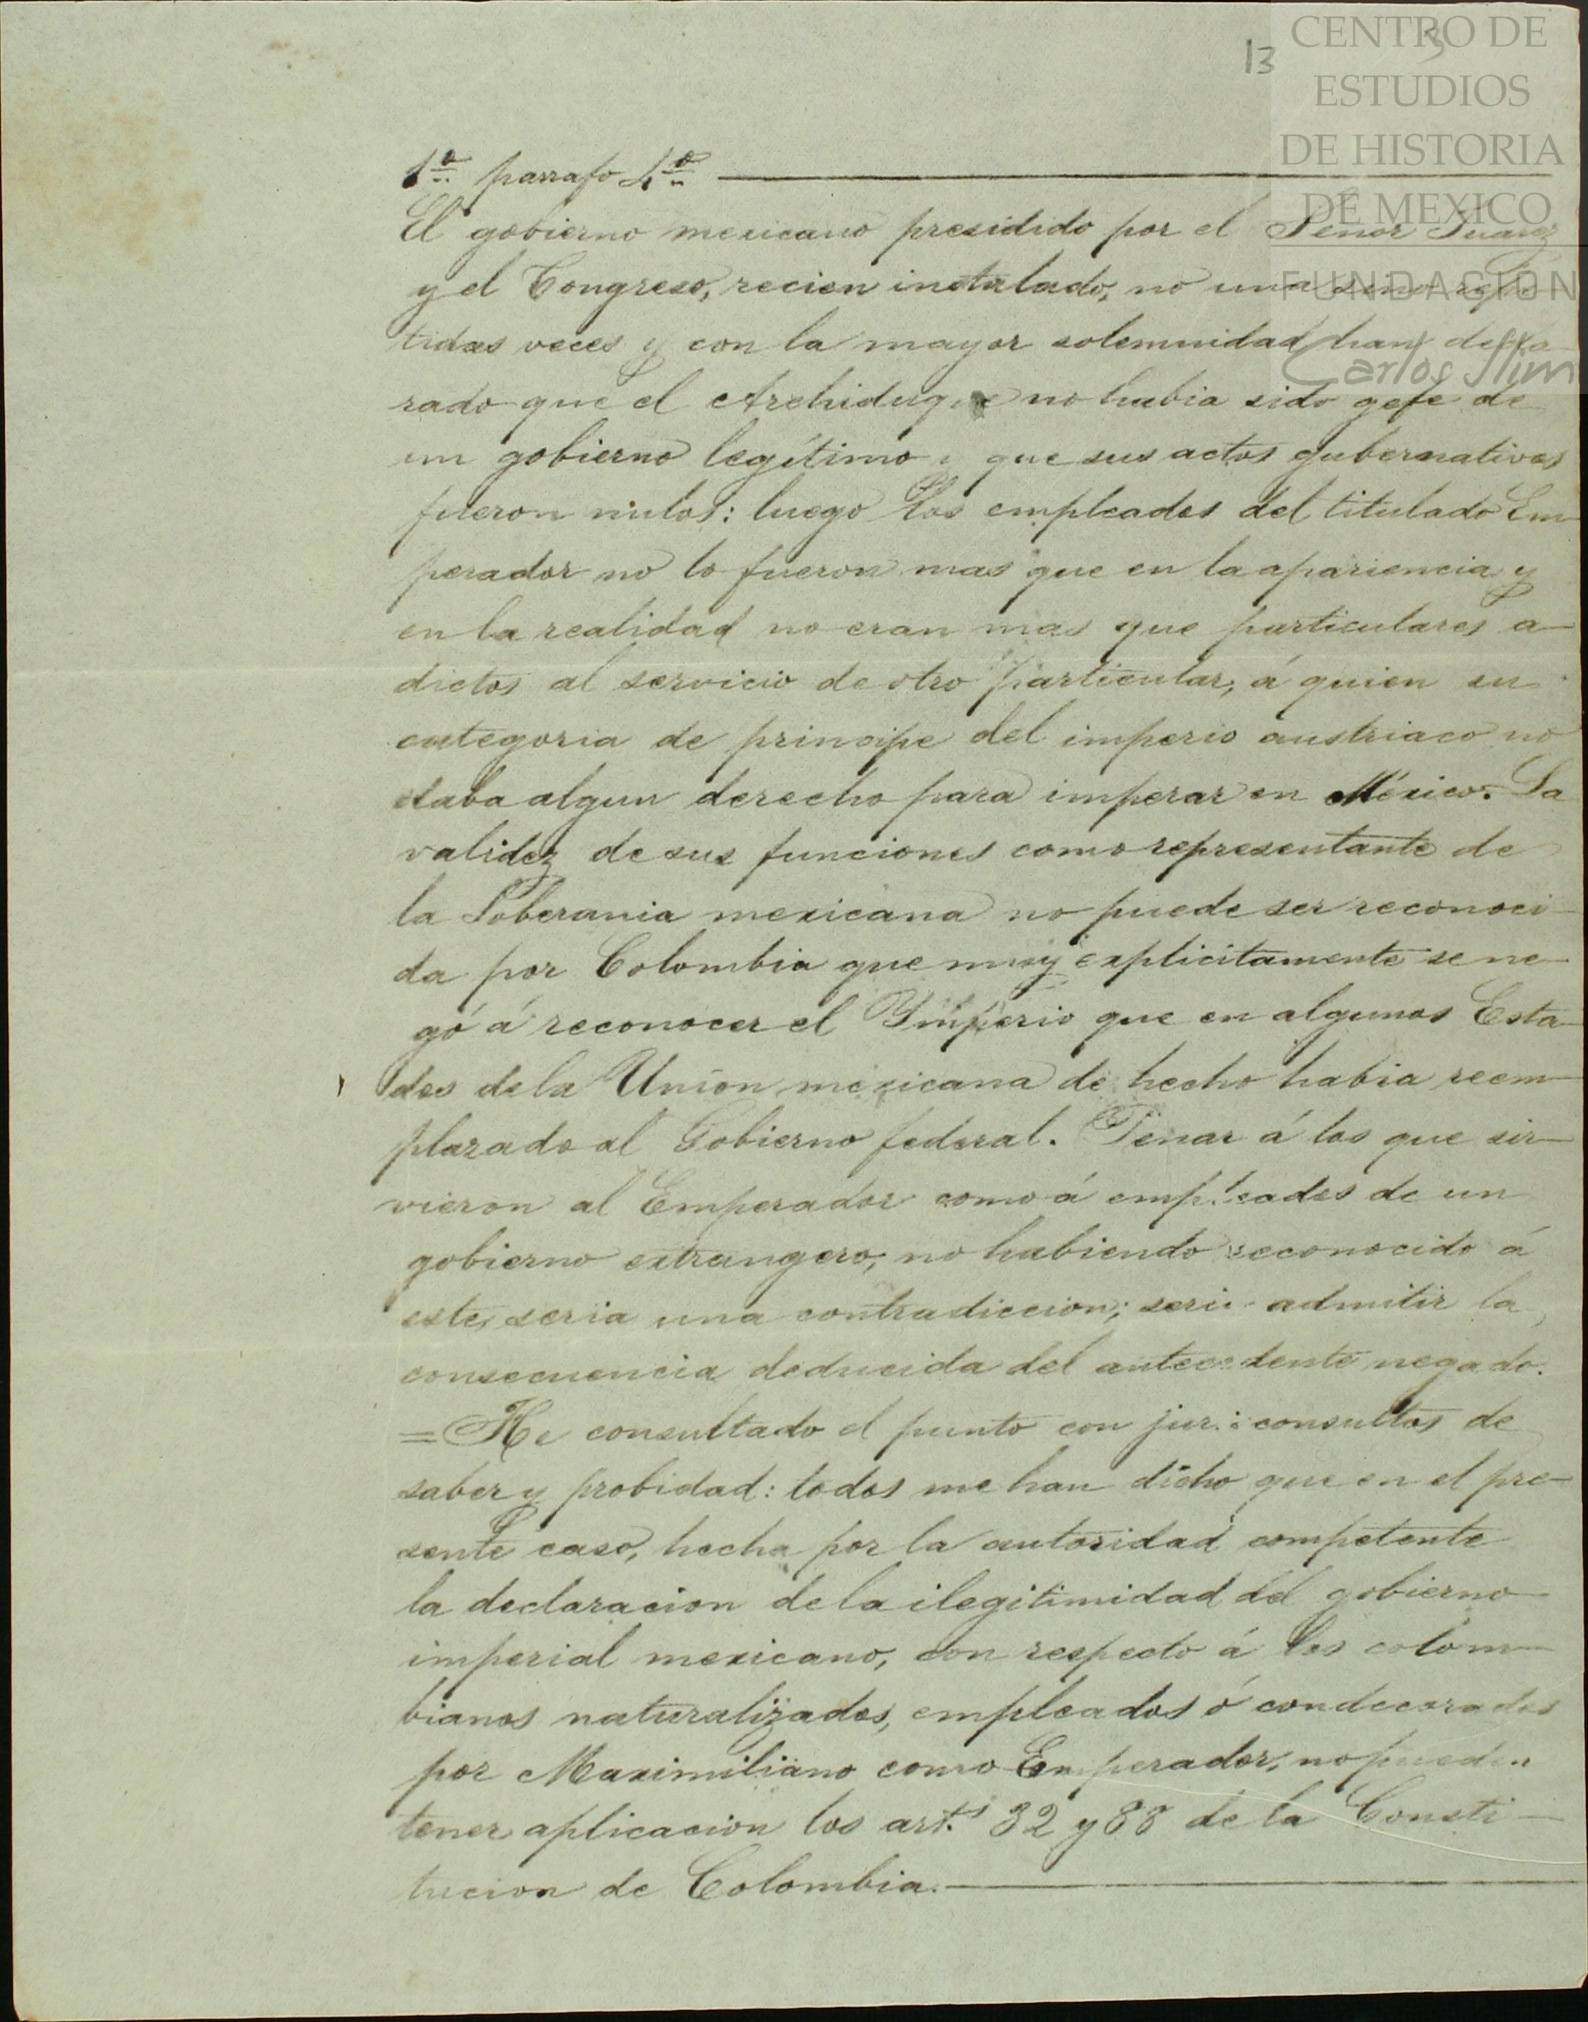 13
3
CENTRO DE
ESTUDIOS
DE HISTORIA
DE MEXICO
FUNDACION
Carlos Slim
1º parrafo 4º
El gobierno mexicano presidido por el Señor Juarez
y el Congreso, recien instalado, no una sino repe-
tidas veces y con la mayor solemnidad han decla-
rado que el Archiduque no habia sido gefe de
un gobierno legítimo y que sus actos gubernativos
fueron nulos: luego los empleados del titulado Em-
perador no lo fueron mas que en la apariencia y
en la realidad no eran mas que particulares a-
dictos al servicio de otro particular, á quien su
categoria de principe del imperio austriaco no
daba algun derecho para imperar en México. La
validez de sus funciones como representante de
la Soberania mexicana no puede ser reconoci-
da por Colombia que muy explicitamente se ne-
gó á reconocer el Ymperio que en algunos Esta-
dos de la Union mexicana de hecho habia reem-
plazado al Gobierno federal. Tener á los que sir-
vieron al Emperador como á empleados de un
gobierno extrangero, no habiendo reconocido á
este, seria una contradiccion; seria admitir la
consecuencia deducida del antecedente negado.
= He consultado el punto con jurisconsultos de
saber y probidad: todos me han dicho que en el pre-
sente caso, hecha por la autoridad competente
la declaracion de la ilegitimidad del gobierno
imperial mexicano, con respecto á los colom-
bianos naturalizados, empleados ó condecorados
por Maximiliano como Emperador, no pueden
tener aplicacion los art.s 32 y 88 de la Consti-
tucion de Colombia.